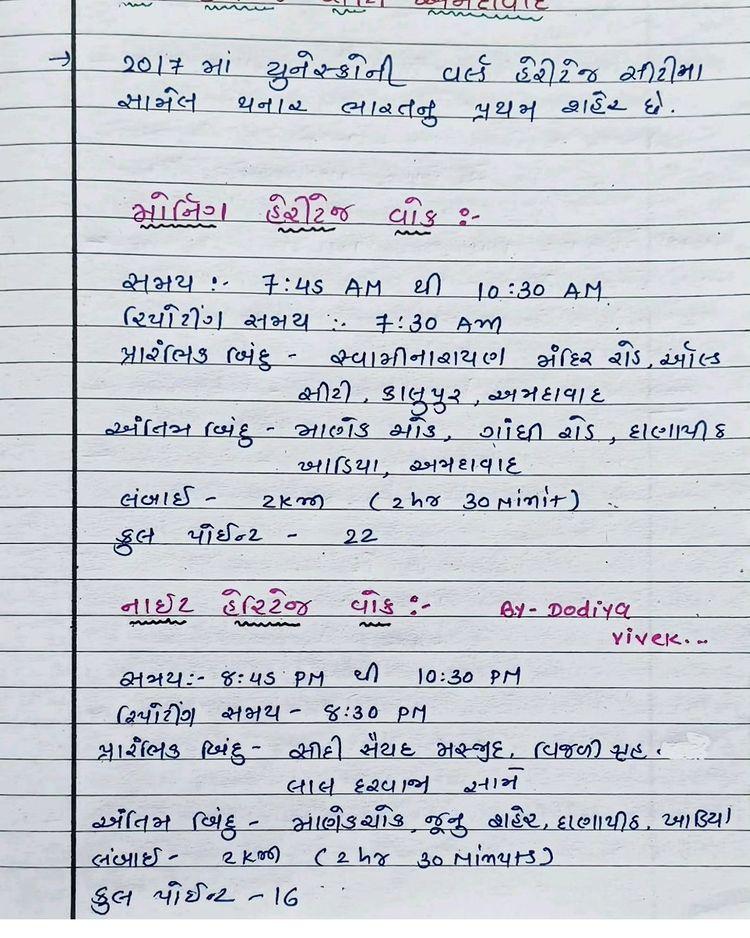 અમદાવાદ
→ 2017 માં યુનેસ્કોની વર્લ્ડ હેરીટેજ સીટીમા
સામેલ થનાર ભારતનુ પ્રથમ શહેર છે.
મોર્નિંગ હેરીટેજ વોક :-
સમય :- 7:45 AM થી 10:30 AM
રિપોર્ટીંગ સમય :- 7:30 AM
પ્રારંભિક બિંદુ - સ્વામીનારાયણ મંદિર રોડ, ઓલ્ડ
સીટી, કાલુપુર, અમદાવાદ
અંતિમ બિંદુ - માણેક ચોક, ગાંધી રોડ, દાણાપીઠ
ખાડિયા, અમદાવાદ
લંબાઈ - 2KM (2hr 30 Minit)
કુલ પોઈન્ટ - 22
નાઈટ હેરિટેજ વોક :- By - Dodiya
vivek...
સમય:- 8:45 PM થી 10:30 PM
રિપોર્ટીંગ સમય - 8:30 PM
પ્રારંભિક બિંદુ - સીદી સૈયદ મસ્જીદ, વિજળી ગૃહ.
લાલ દરવાજા સામે
અંતિમ બિંદુ - માણેકચોક, જૂનુ શહેર, દાણાપીઠ, ખાડિયા
લંબાઈ - 2KM (2hr 30 Minuts)
કુલ પોઈન્ટ - 16